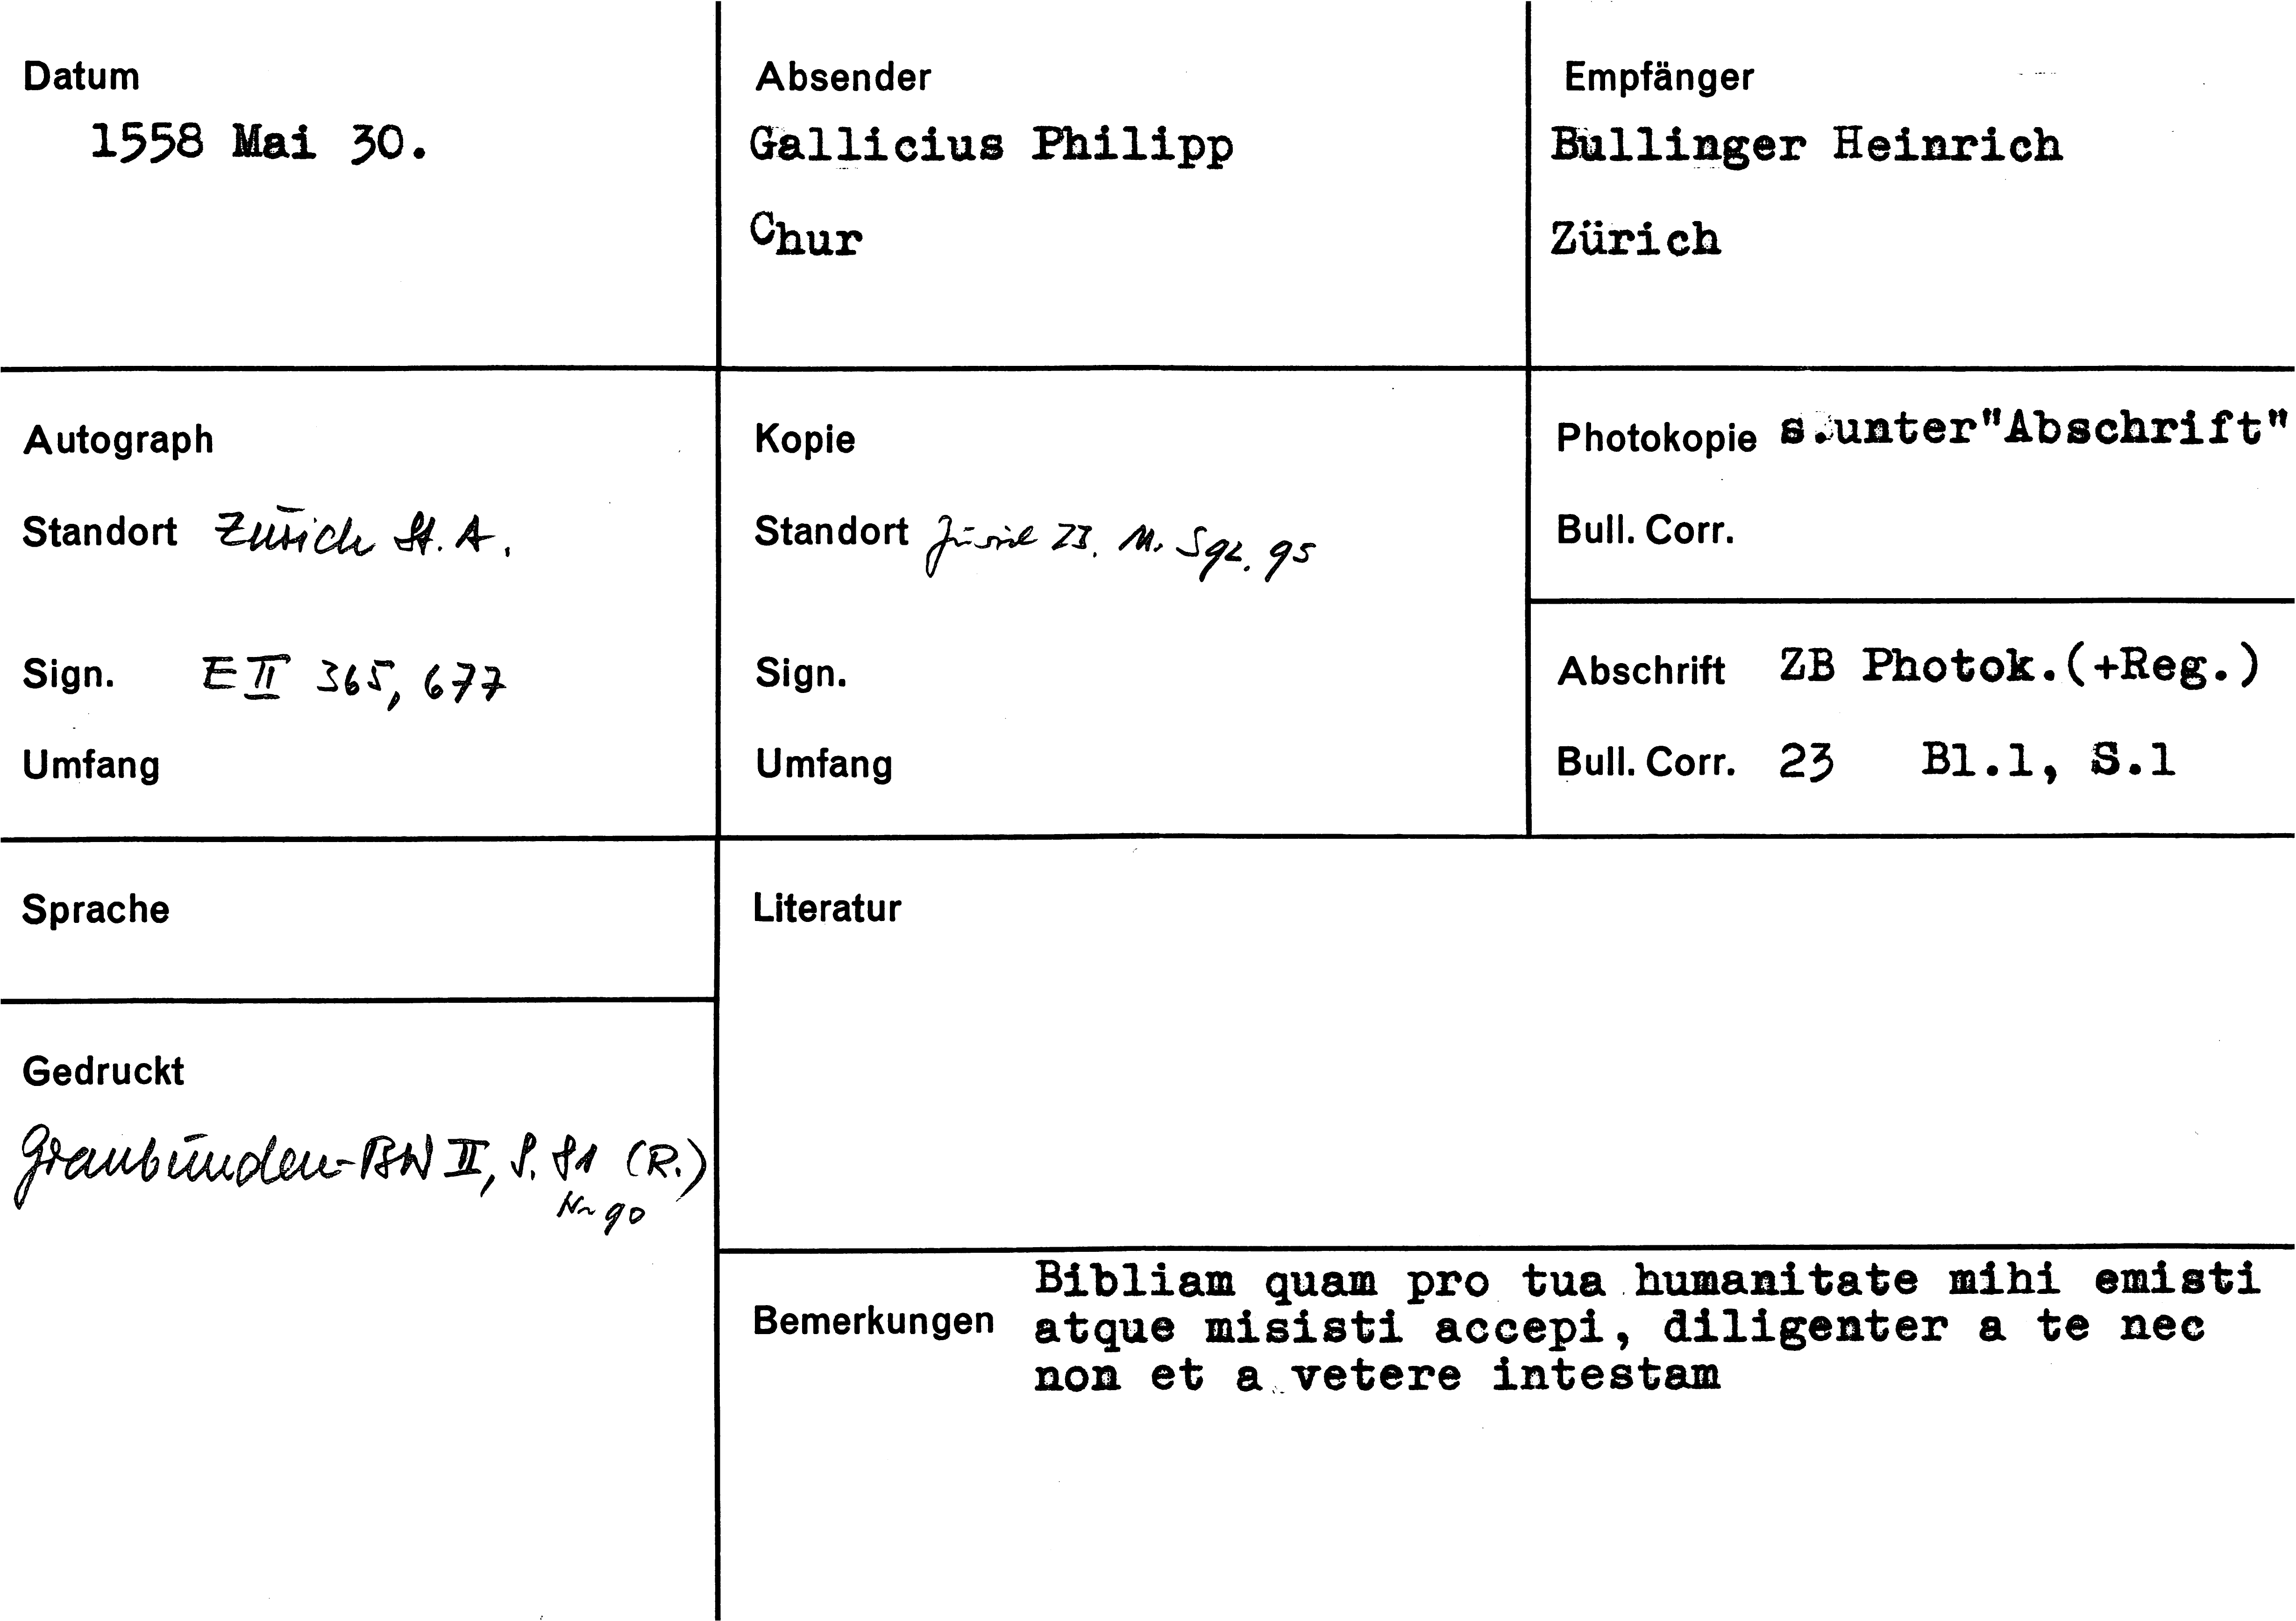 Datum
1558 Mai 30.
Absender
Gallicius Philipp
Chur
Empfänger
Bullinger Heinrich
Zürich
Autograph
Standort Zürich St. A.
Sign. E II 365, 677
Umfang
Kopie
Standort Zürich ZB. M. S 92. 95
Sign.
Umfang
Photokopie s.unter"Abschrift"
Bull. Corr.
Abschrift ZB Photok.(+Reg.)
Bull. Corr. 23 Bl.1, S.1
Sprache
Gedruckt
Graubünden-BW II, S. 81 (R.)
Nr 90
Literatur
Bemerkungen
Bibliam quam pro tua humanitate mihi emisti
atque misisti accepi, diligenter a te nec
non et a vetere intestam